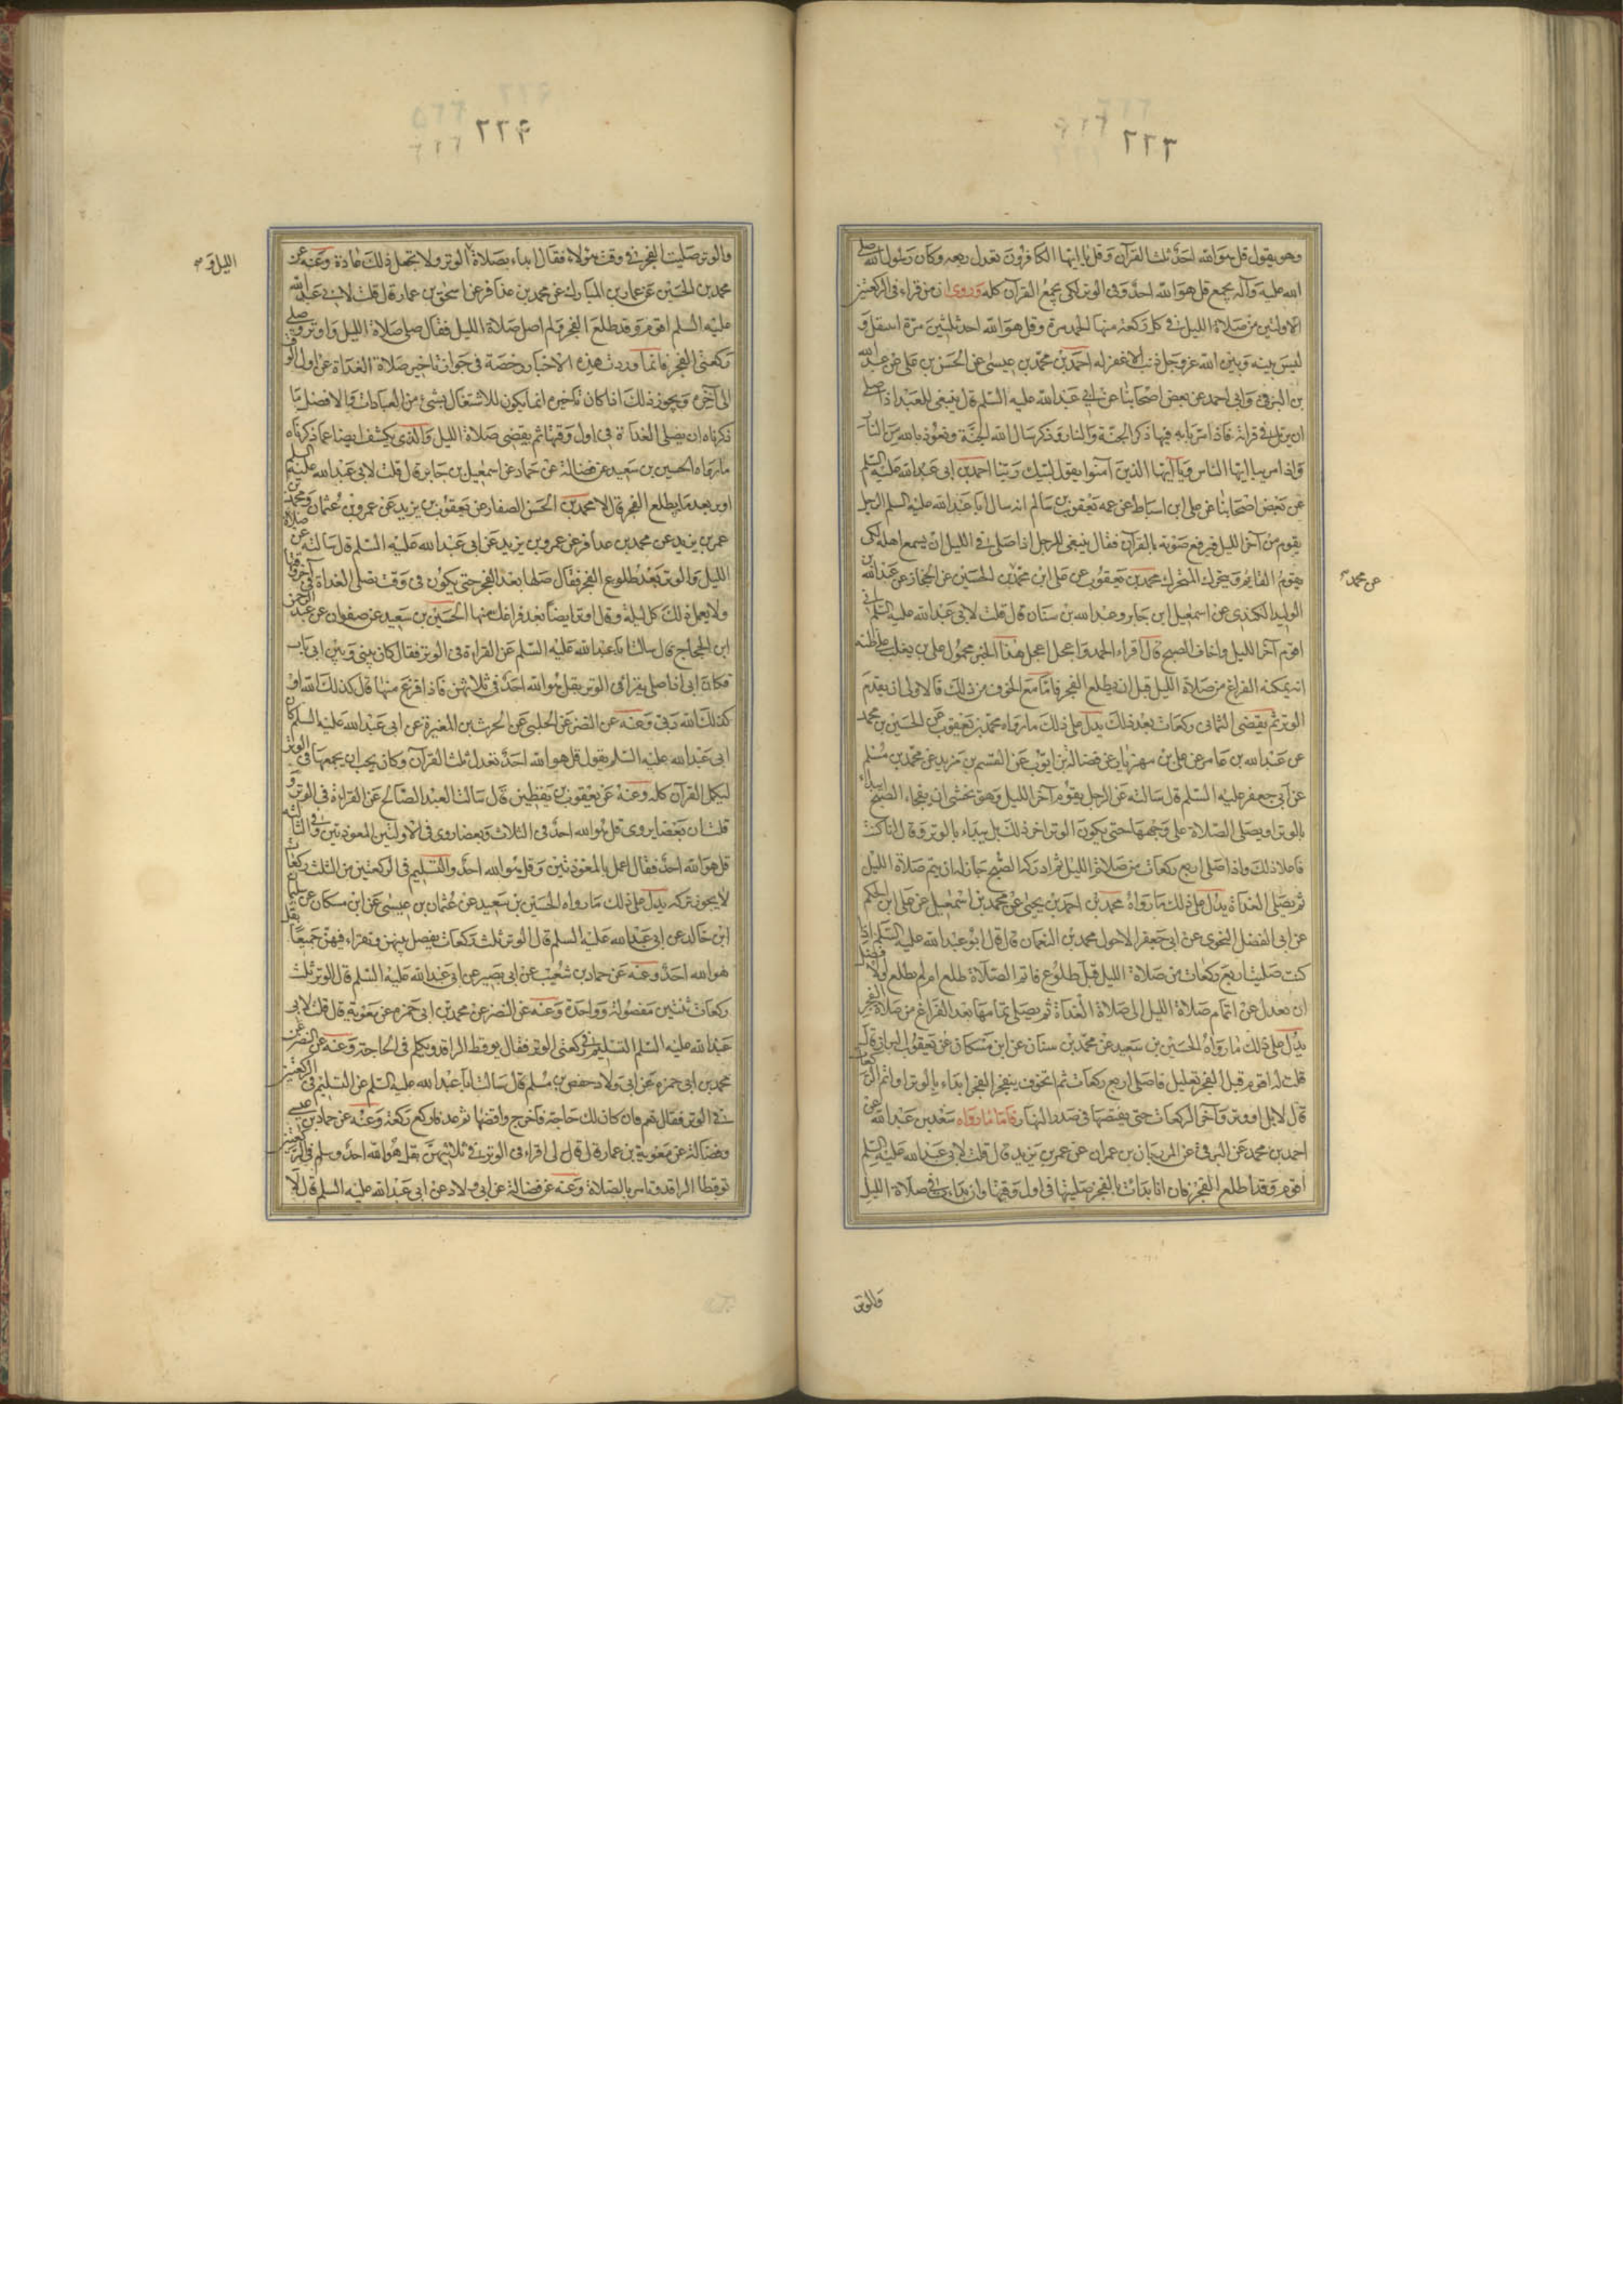 ٦٦٦
وهو يقول قل هو الله احد ثلث القرآن وقل يا ايها الكافرون تعدل ربعه وكان رسول الله صلى
الله عليه وآله يجمع قل هو الله احد وفى الوتر لكى يجمع القرآن كله وروى ان من قراء فى الركعتين
الاولتين من صلاة الليل فى كل ركعة منها الحمد مرة وقل هو الله احد ثلثين مرة انفتل و
ليس بينه وبين الله عز وجل ذنب الا غفر له احمد بن محمد بن عيسى عن الحسن بن على عن عبد الله
بن البرقى وابى احمد عن بعض اصحابنا عن ابى عبد الله عليه السلم قال ينبغى للعبد اذا صلى
ان يرتل فى قرائته فاذا مر باية فيها ذكر الجنة والنار وذكر سال الله الجنة وتعوذ بالله من النار
واذا مر بيا ايها الناس ويا ايها الذين آمنوا يقول لبيك ربنا احمد بن ابى عبد الله عليه السلم
عن بعض اصحابنا عن على ابن اسباط عن عمه يعقوب بن سالم انه سال ابا عبد الله عليه السلم الرجل
يقوم من آخر الليل فيرفع صوته بالقرآن فقال ينبغى للرجل اذا صلى فى الليل ان يسمع اهله لكى
يقوم القايم ويتحرك المتحرك محمد بن يعقوب عن على ابن محمد بن الحسين عن الحجاز عن عبد الله بن
عن محمد
الوليد الكندى عن اسمعيل ابن جابر وعبد الله بن سنان قال قلت لابى عبد الله عليه السلم انى
اقوم آخر الليل واخاف الصبح قال اقراء الحمد واعجل اعجل هذا الخبر محمول على من يغلب على ظنه
انه يمكنه الفراغ من صلاة الليل قبل ان يطلع الفجر فاما مع الخوف من ذلك فالاولى ان يقدم
الوتر ثم يقضى الثمانى ركعات بعد ذلك يدل على ذلك ما رواه محمد بن يعقوب عن الحسين بن محمد
عن عبد الله بن عامر عن على بن مهزيار عن فضالة بن ايوب عن القسم بن بريد عن محمد بن مسلم
عن ابى جعفر عليه السلم قال سالته عن الرجل يقوم آخر الليل وهو يخشى ان يفجاه الصبح ايبداء
بالوتر او يصلى الصلاة على وجهها حتى يكون الوتر اخر ذلك بل يبداء بالوتر وقال انا كنت
فاعلا ذلك واذا صلى اربع ركعات من صلاة الليل ثم ادركه الصبح جاز له ان يتم صلاة الليل
ثم يصلى الغداة يدل على ذلك ما رواه محمد بن احمد بن يحيى عن محمد بن اسمعيل عن على ابن الحكم
عن ابى الفضل النحوى عن ابى جعفر الاحول محمد بن النعمان قال قال ابو عبد الله عليه السلم اذا
كنت صليت اربع ركعات من صلاة الليل قبل طلوع فاتم الصلاة طلع ام لم يطلع فضل
ان يعدل عن اتمام صلاة الليل الى صلاة الغداة ثم يصلى تمامها بعد الفراغ من صلاة الفجر
يدل على ذلك ما رواه الحسين بن سعيد عن محمد بن سنان عن ابن مسكان عن يعقوب البزاز قال
قلت له اقوم قبل الفجر بقليل فاصلى اربع ركعات ثم اتخوف ينفجر الفجر ابداء بالوتر او اتم الركعات
قال لا بل اوتر واخر الركعات حتى يقضيها فى صدر النهار فاما ما رواه سعد بن عبد الله عن
احمد بن محمد عن البرقى عن المرزبان بن عمران عن عمر بن يزيد قال قلت لابى عبد الله عليه السلم
اقوم وقد طلع الفجر فان انا بدات بالفجر صليتها فى اول وقتها وان بدات فى صلاة الليل
والوتر
٦٦٩
والوتر صليت الفجر فى وقت هؤلاء فقال ابداء بصلاة الوتر ولا تجعل ذلك عادة وعنه عن
الليل و
محمد بن الحسين عن عمار بن المبارك عن محمد بن عذافر عن اسحق بن عمار قال قلت لابى عبد الله
عليه السلم اقوم وقد طلع الفجر ولم اصل صلاة الليل فقال صل صلاة الليل واوتر وصل
ركعتى الفجر فانما وردت هذه الاخبار رخصة فى جواز تاخير صلاة الغداة عن اول الوقت
الى آخره ويجوز ذلك اذا كان تاخيره انما يكون للاشتغال بشئ من العبادات والافضل ما
ذكرناه ان يصلى الغداة فى اول وقتها ثم يقضى صلاة الليل والذى يكشف ايضا عما ذكرناه
ما رواه الحسين بن سعيد عن فضالة عن حماد عن اسمعيل بن جابر قال قلت لابى عبد الله عليه السلم
اوتر بعد ما يطلع الفجر قال لا محمد بن الحسن الصفار عن يعقوب بن يزيد عن عمرو بن عثمان ومحمد بن
عمر بن يزيد عن محمد بن عذافر عن عمرو بن يزيد عن ابى عبد الله عليه السلم قال سالته عن صلاة
الليل والوتر بعد طلوع الفجر فقال صلها بعد الفجر حتى يكون فى وقت تصلى الغداة فى آخر وقتها
ولا يعمل ذلك كل ليلة وقال اوتر ايضا بعد فراغك منها الحسين بن سعيد عن صفوان عن عبد الرحمن
ابن الحجاج قال سالت ابا عبد الله عليه السلم عن القراءة فى الوتر فقال كان بينى وبين ابى باب
فكان ابى اذا صلى يقرا فى الوتر بقل هو الله احد فى ثلاثهن فاذا فرغ منها قال كذلك الله او
كذلك الله ربى وعنه عن النضر عن الحلبى عن الحرث بن المغيرة عن ابى عبد الله عليه السلم كان
ابى عبد الله عليه السلم يقول قل هو الله احد تعدل ثلث القرآن وكان يحب ان يجمعها فى الوتر
ليكمل القرآن كله وعنه عن يعقوب بن يقطين قال سالت العبد الصالح عن القراءة فى الوتر و
قلت ان بعضا يروى قل هو الله احد فى الثلاث وبعضا روى فى الاولتين المعوذتين وفى الثالثة
قل هو الله احد فقال اعمل بالمعوذتين وقل هو الله احد والتسليم فى الركعتين من الثلث ركعات
لا يجوز تركه يدل على ذلك ما رواه الحسين بن سعيد عن عثمان بن عيسى عن ابن مسكان عن سليمان
ابن خالد عن ابى عبد الله عليه السلم قال الوتر ثلث ركعات يفصل بينهن ويقراء فيهن جميعا بقل
هو الله احد وعنه عن حماد بن شعيب عن ابى بصير عن ابى عبد الله عليه السلم قال الوتر ثلث
ركعات ثنتين مفصولة وواحدة وعنه عن النضر عن محمد بن ابى حمزه عن معوية قال قلت لابى
عبد الله عليه السلم التسليم فى ركعتى الوتر فقال يوقظ الراقد ويكلم فى الحاجة وعنه عن النضر عن
محمد بن ابى حمزه عن ابى ولاد حفص بن سلم قال سالت ابا عبد الله عليه السلم عن التسليم فى الركعتين
فى الوتر فقال نعم فان كان لك حاجة فاخرج واقضها ثم عد فاركع ركعة وعنه عن حماد بن عيسى
وفضالة عن معوية بن عمار قال قال لى اقراء فى الوتر فى ثلثيهن بقل هو الله احد وسلم فى الركعتين
توقظ الراقد وتامر بالصلاة وعنه عن فضالة عن ابى ولاد عن ابى عبد الله عليه السلم قال لا